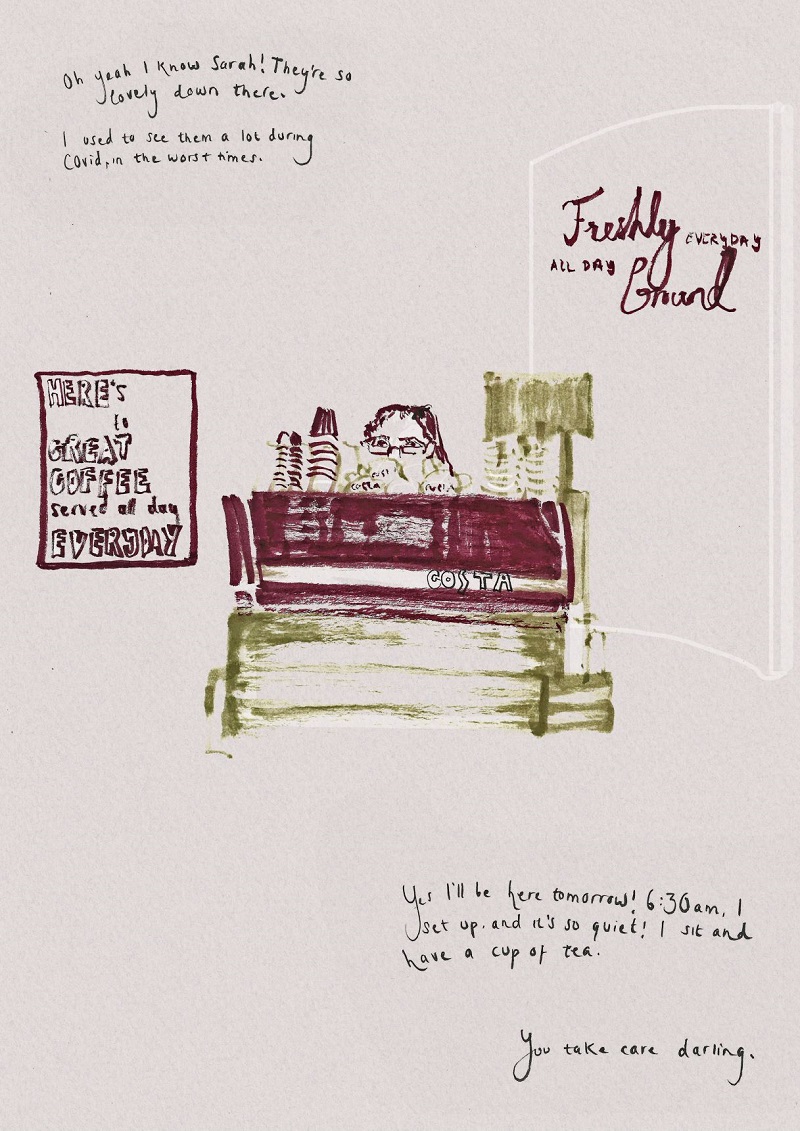 Oh yeah I know Sarah! They're so
lovely down there.
I used to see them a lot during
Covid, in the worst times.
Freshly EVERYDAY
ALL DAY Ground
HERE'S
to
GREAT
COFFEE
served all day
EVERYDAY
COSTA
COSTA
Yes I'll be here tomorrow! 6:30am, I
set up, and it's so quiet! I sit and
have a cup of tea.
You take care darling.